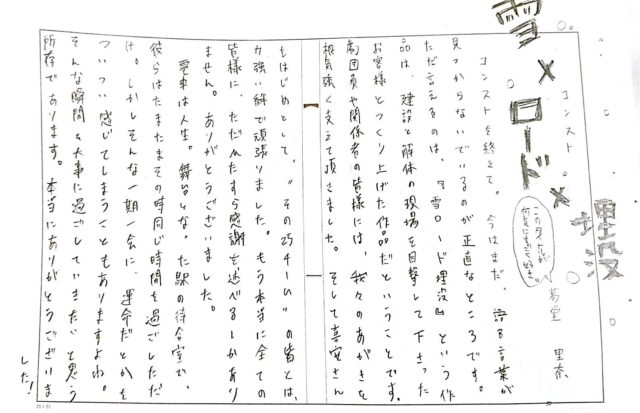 雪×ロード×埋設
コンスト。
この夕で
べあ堂 里奈
コンストを終えて。今はまだ、語る言葉が
見つからないでいるのが正直なところです。
ただ言えるのは、『雪ロード埋設』という作
品は、建設と解体の現場を目撃して下さった
お客様とつくり上げた作品だということです。
劇団員や関係者の皆様には、我々のあがきを
根気強く支えて頂きました。そして喜安さん
をはじめとして、“その25チーム”の皆とは、
力強い絆で頑張りました。もう本当に全ての
皆様に、ただひたすら感謝を述べるしかあり
ません。ありがとうございました。
電車は人生。舞台となった駅の待合室で、
彼らはたまたまその時同じ時間を過ごしただ
け。しかしそんな一期一会に、運命だとかを
ついつい感じてしまうこともありますよね。
そんな瞬間を大事に過ごしていきたいと思う
所存であります。本当にありがとうございま
した!